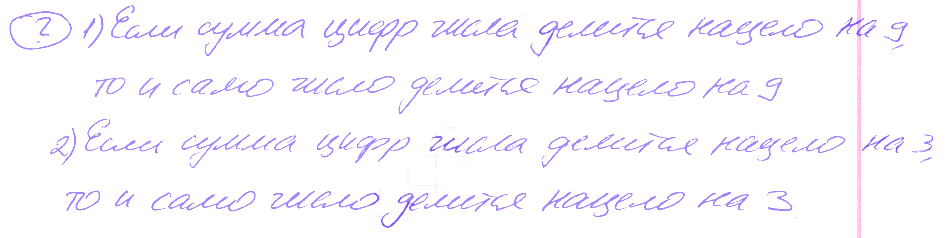 ? 1) Если сумма цифр числа делится нацело на 9,
то и само число делится нацело на 9
2) Если сумма цифр числа делится нацело на 3,
то и само число делится нацело на 3